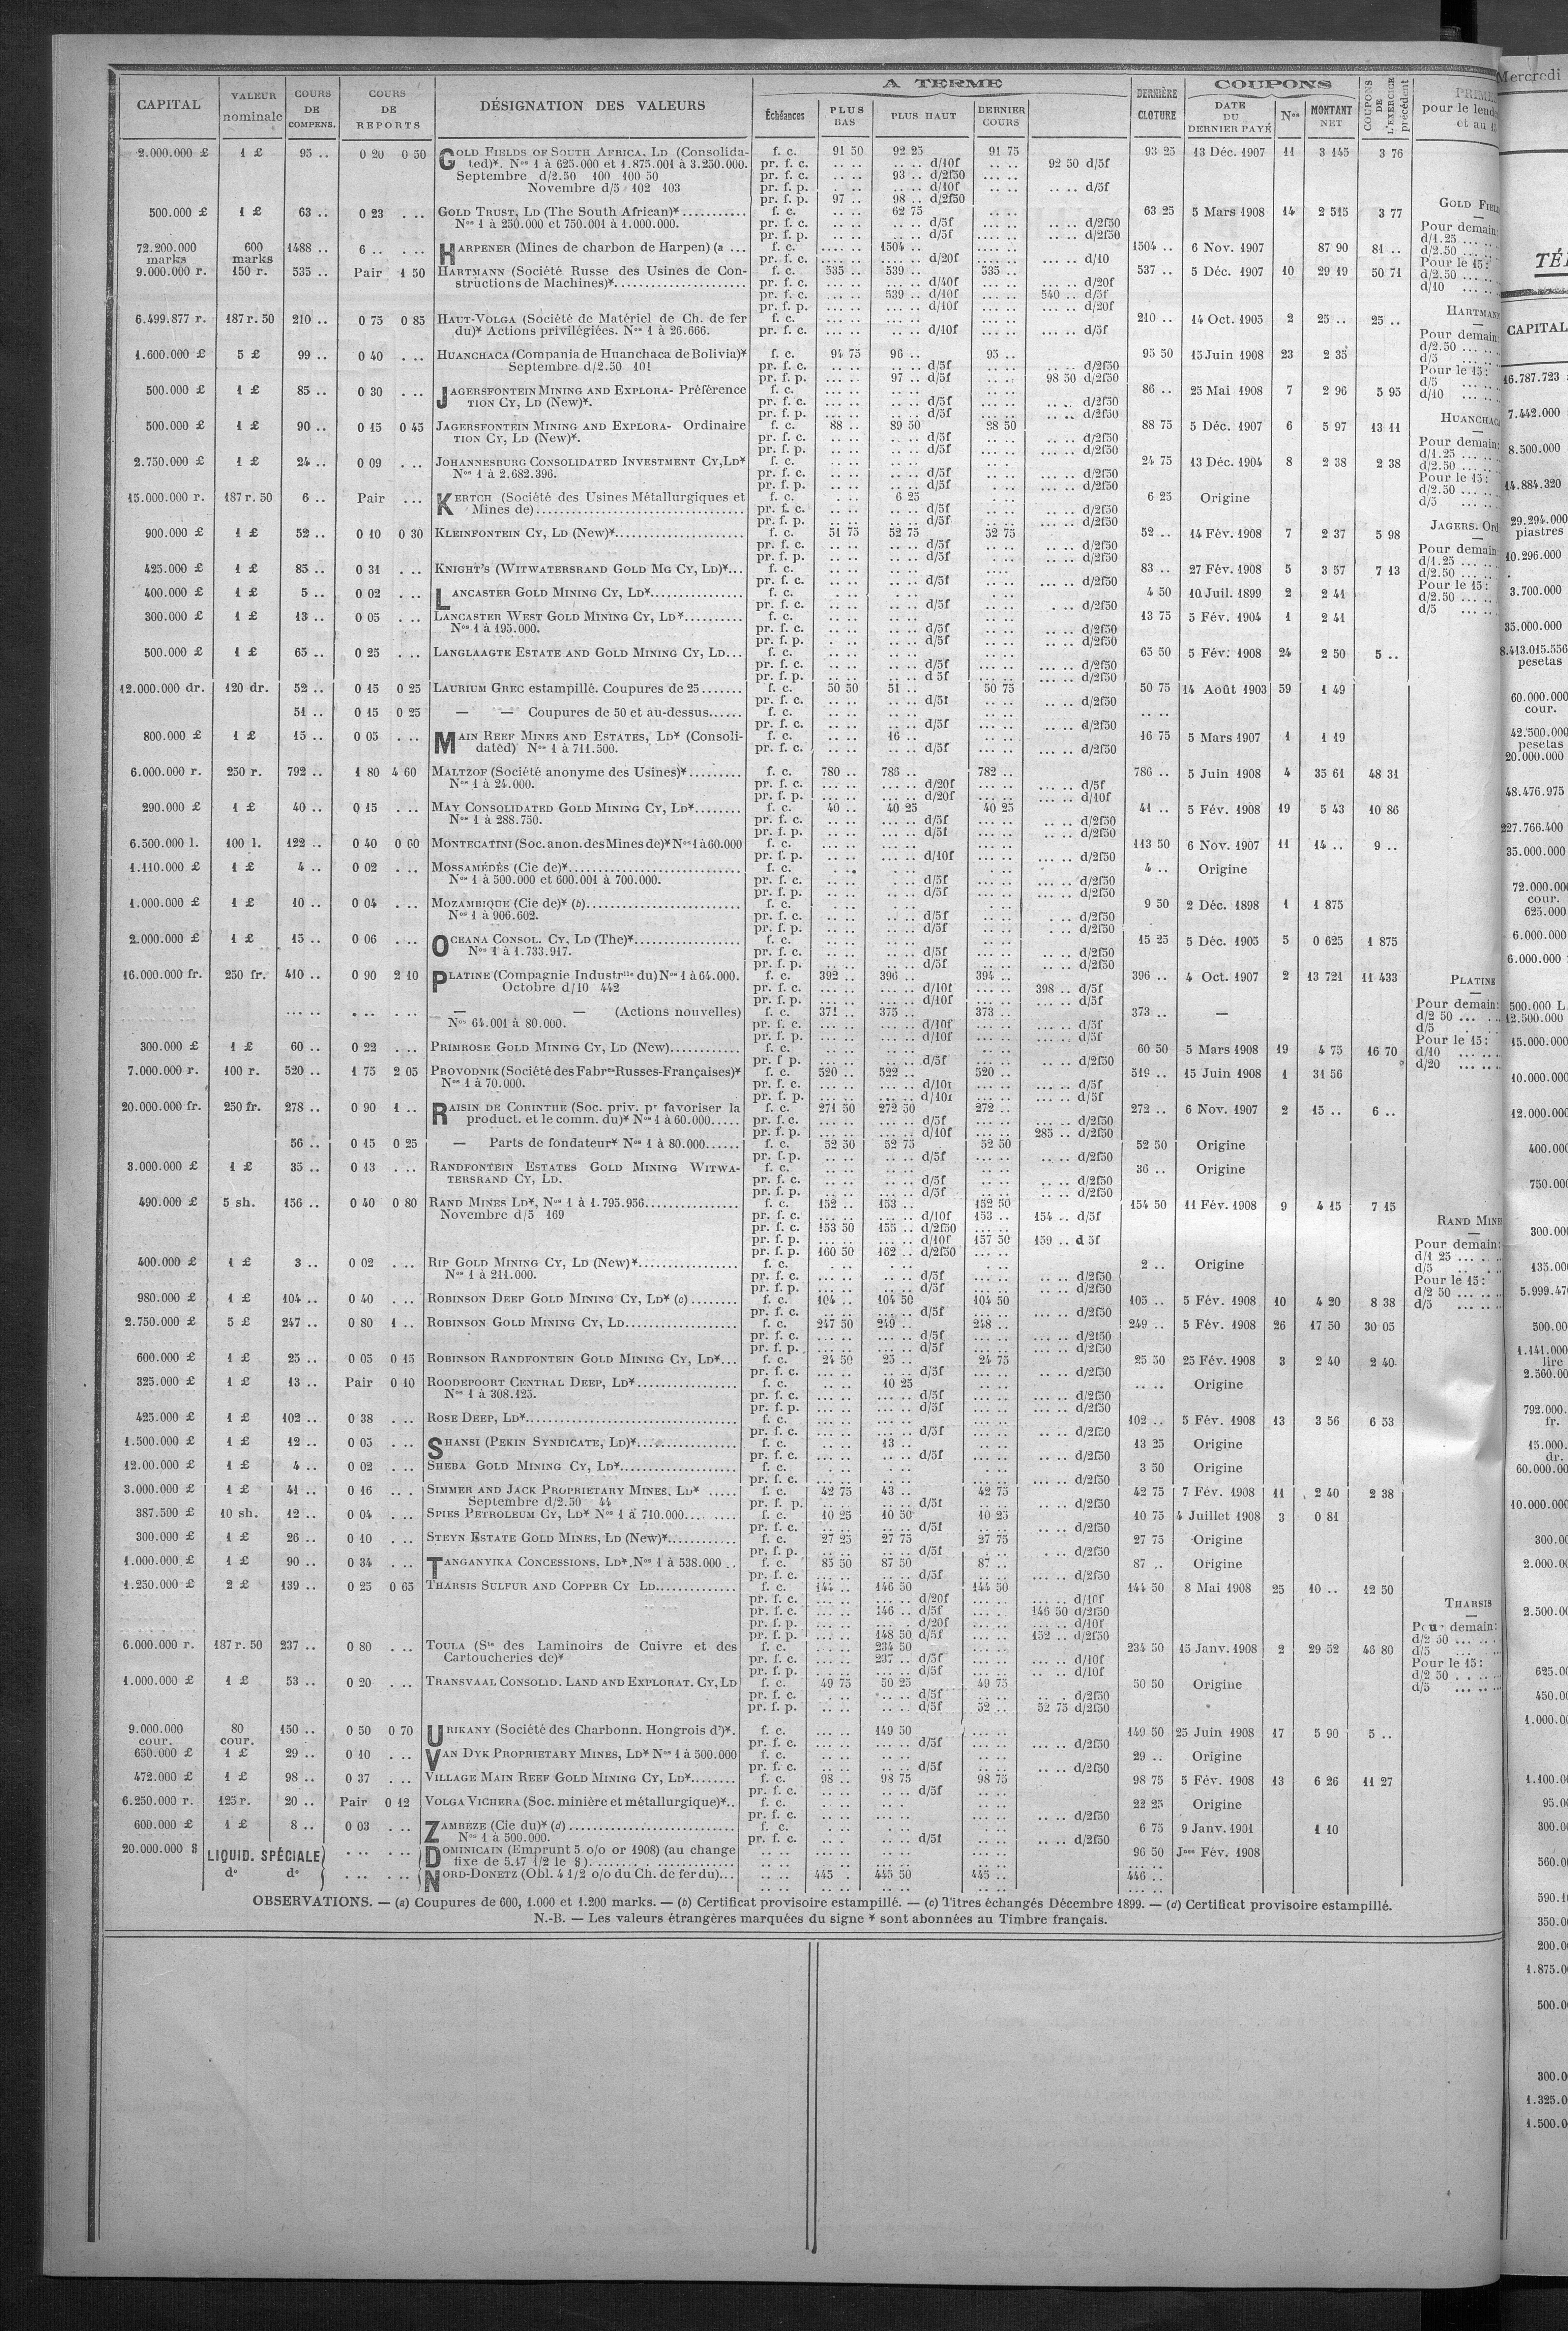 A TERME
COUPONS
CAPITAL VALEUR nominale COURS DE COMPENS. COURS DE REPORTS DÉSIGNATION DES VALEURS Échéances PLUS BAS PLUS HAUT DERNIER COURS DERNIÈRE CLOTURE DATE DU DERNIER PAYÉ Nos MONTANT NET COUPONS DE L'EXERCICE précédent
2.000.000 £ 1 £ 95 .. 0 20 0 50 GOLD FIELDS OF SOUTH AFRICA, LD (Consolida- f. c. 91 50 92 25 91 75 93 25 13 Déc. 1907 11 3 145 3 76
ted)*. Nos 1 à 625.000 et 1.875.001 à 3.250.000. pr. f. c. .. .. .. .. d/10f .. .. 92 50 d/5f
Septembre d/2.50 100 100 50 pr. f. c. .. .. 93 .. d/2f50 ... ..
Novembre d/5 102 103 pr. f. p. .. .. d/10f .. .. .. .. d/5f
pr. f. p. 97 .. 98 .. d/2f50
500.000 £ 1 £ 63 .. 0 23 . .. GOLD TRUST, LD (The South African)* f. c. .. .. 62 75 .. .. 63 25 5 Mars 1908 14 2 515 3 77
Nos 1 à 250.000 et 750.001 à 1.000.000. pr. f. c. .. .. .. .. d/5f .. .. d/2f50
pr. f. p. .. .. .. .. d/5f .. .. d/2f50
72.200.000 marks 600 marks 1488 .. 6 .. . .. HARPENER (Mines de charbon de Harpen) (a ... f. c. .... .. 1504 .. .... .. 1504 .. 6 Nov. 1907 87 90 81 ..
pr. f. c. .... .. .... .. d/20f .... .. d/10
9.000.000 r. 150 r. 535 .. Pair 1 50 HARTMANN (Société Russe des Usines de Con- f. c. 535 .. 539 .. 535 .. 537 .. 5 Déc. 1907 10 29 19 50 71
structions de Machines)* pr. f. c. ... .. ... .. d/40f ... .. d/20f
pr. f. c. ... .. 539 .. d/10f ... .. 540 .. d/5f
pr. f. p. ... .. ... .. d/10f ... .. d/20f
6.499.877 r. 187 r. 50 210 .. 0 75 0 85 HAUT-VOLGA (Société de Matériel de Ch. de fer f. c. ... .. ... .. ... .. 210 .. 14 Oct. 1905 2 25 .. 25 ..
du)* Actions privilégiées. Nos 1 à 26.666. pr. f. c. ... .. ... .. d/10f ... .. d/5f
1.600.000 £ 5 £ 99 .. 0 40 . .. HUANCHACA (Compania de Huanchaca de Bolivia)* f. c. 94 75 96 .. 95 .. 95 50 15 Juin 1908 23 2 35
Septembre d/2.50 101 pr. f. c. .. .. .. .. d/5f .. .. d/2f50
pr. f. p. ... .. 97 .. d/5f .. .. 98 50 d/2f50
500.000 £ 1 £ 85 .. 0 30 . .. JAGERSFONTEIN MINING AND EXPLORA- Préférence f. c. .. .. .. .. .. .. 86 .. 25 Mai 1908 7 2 96 5 95
TION CY, LD (New)*. pr. f. c. .. .. .. .. d/5f .. .. d/2f50
pr. f. p. .. .. .. .. d/5f .. .. d/2f50
500.000 £ 1 £ 90 .. 0 15 0 45 JAGERSFONTEIN MINING AND EXPLORA- Ordinaire f. c. 88 .. 89 50 88 50 88 75 5 Déc. 1907 6 5 97 13 11
TION CY, LD (New)*. pr. f. c. .. .. .. .. d/5f .. .. d/2f50
pr. f. p. .. .. .. .. d/5f .. .. d/2f50
2.750.000 £ 1 £ 24 .. 0 09 . .. JOHANNESBURG CONSOLIDATED INVESTMENT CY, LD* f. c. .. .. .. .. .. .. 24 75 13 Déc. 1904 8 2 38 2 38
Nos 1 à 2.682.396. pr. f. c. .. .. .. .. d/5f .. .. d/2f50
pr. f. p. .. .. .. .. d/5f .. .. d/2f50
15.000.000 r. 187 r. 50 6 .. Pair . .. KERTCH (Société des Usines Métallurgiques et f. c. . .. 6 25 . .. 6 25 Origine
Mines de) pr. f. c. .. .. .. .. d/5f .. .. d/2f50
pr. f. p. .. .. .. .. d/5f .. .. d/2f50
900.000 £ 1 £ 52 .. 0 10 0 30 KLEINFONTEIN CY, LD (New)* f. c. 51 75 52 75 52 75 52 .. 14 Fév. 1908 7 2 37 5 98
pr. f. c. .. .. .. .. d/5f .. .. d/2f50
pr. f. p. .. .. .. .. d/5f .. .. d/2f50
425.000 £ 1 £ 85 .. 0 31 . .. KNIGHT'S (WITWATERSRAND GOLD MG CY, LD)*... f. c. .. .. .. .. .. .. 83 .. 27 Fév. 1908 5 3 57 7 13
pr. f. c. ... .. ... .. d/5f ... .. d/2f50
400.000 £ 1 £ 5 .. 0 02 . .. LANCASTER GOLD MINING CY, LD* f. c. . .. . .. . .. 4 50 10 Juil. 1899 2 2 41
pr. f. c. .. .. .. .. d/5f . .. d/2f50
300.000 £ 1 £ 13 .. 0 05 . .. LANCASTER WEST GOLD MINING CY, LD* f. c. .. .. .. .. .. .. 13 75 5 Fév. 1904 1 2 41
Nos 1 à 195.000. pr. f. c. .. .. .. .. d/5f .. .. d/2f50
pr. f. p. .. .. .. .. d/5f .. .. d/2f50
500.000 £ 1 £ 65 .. 0 25 . .. LANGLAAGTE ESTATE AND GOLD MINING CY, LD... f. c. .. .. .. .. .. .. 65 50 5 Fév. 1908 24 2 50 5 ..
pr. f. c. .. .. .. .. d/5f ... .. d/2f50
pr. f. p. .. .. .. .. d 5f ... .. d/2f50
12.000.000 dr. 120 dr. 52 .. 0 15 0 25 LAURIUM GREC estampillé. Coupures de 25 f. c. 50 50 51 .. 50 75 50 75 14 Août 1903 59 1 49
pr. f. c. .. .. .. .. d/5f .. .. d/2f50
51 .. 0 15 0 25 — — Coupures de 50 et au-dessus f. c. .. .. .. .. .. .. .. ..
pr. f. c. .. .. .. .. d/5f .. .. d/2f50
800.000 £ 1 £ 15 .. 0 05 . .. MAIN REEF MINES AND ESTATES, LD* (Consoli- f. c. .. .. 16 .. .. .. 16 75 5 Mars 1907 1 1 19
dated) Nos 1 à 711.500. pr. f. c. .. .. .. .. d/5f ... .. d/2f50
6.000.000 r. 250 r. 792 .. 1 80 4 60 MALTZOF (Société anonyme des Usines)* f. c. 780 .. 786 .. 782 .. 786 .. 5 Juin 1908 4 35 61 48 31
Nos 1 à 24.000. pr. f. c. ... .. ... .. d/20f ... .. d/5f
pr. f. p. ... .. ... .. d/20f ... .. d/10f
290.000 £ 1 £ 40 .. 0 15 . .. MAY CONSOLIDATED GOLD MINING CY, LD* f. c. 40 .. 40 25 40 25 41 .. 5 Fév. 1908 19 5 43 10 86
Nos 1 à 288.750. pr. f. c. .. .. ... .. d/5f .. .. d/2f50
pr. f. p. .. .. ... .. d/5f .. .. d/2f50
6.500.000 l. 100 l. 122 .. 0 40 0 60 MONTECATINI (Soc. anon. des Mines de)* Nos 1 à 60.000 f. c. ... .. ... .. ... .. 113 50 6 Nov. 1907 11 14 .. 9 ..
pr. f. p. ... .. ... .. d/10f ... .. d/2f50
1.110.000 £ 1 £ 4 .. 0 02 . .. MOSSAMÉDÈS (Cie de)* f. c. . .. . .. . .. 4 .. Origine
Nos 1 à 500.000 et 600.001 à 700.000. pr. f. c. .. .. .. .. d/5f ... .. d/2f50
pr. f. p. .. .. .. .. d/5f ... .. d/2f50
1.000.000 £ 1 £ 10 .. 0 04 . .. MOZAMBIQUE (Cie de)* (b) f. c. .. .. .. .. .. .. 9 50 2 Déc. 1898 1 1 875
Nos 1 à 906.602. pr. f. c. .. .. .. .. d/5f . .. d/2f50
pr. f. p. .. .. .. .. d/5f . .. d/2f50
2.000.000 £ 1 £ 15 .. 0 06 . .. OCEANA CONSOL. CY, LD (The)* f. c. .. .. .. .. .. .. 15 25 5 Déc. 1905 5 0 625 1 875
Nos 1 à 1.733.917. pr. f. c. .. .. .. .. d/5f .. .. d/2f50
pr. f. p. .. .. .. .. d/5f .. .. d/2f50
16.000.000 fr. 250 fr. 410 .. 0 90 2 10 PLATINE (Compagnie Industrlle du) Nos 1 à 64.000. f. c. 392 .. 396 .. 394 .. 396 .. 4 Oct. 1907 2 13 721 11 433
Octobre d/10 442 pr. f. c. ... .. ... .. d/10f ... .. 398 .. d/5f
pr. f. p. ... .. ... .. d/10f ... .. ... .. d/5f
— — (Actions nouvelles) f. c. 371 .. 375 .. 373 .. 373 .. —
Nos 64.001 à 80.000. pr. f. c. ... .. ... .. d/10f ... .. d/5f
pr. f. p. ... .. ... .. d/10f ... .. d/5f
300.000 £ 1 £ 60 .. 0 22 . .. PRIMROSE GOLD MINING CY, LD (New) f. c. .. .. .. .. .. .. 60 50 5 Mars 1908 19 4 75 16 70
pr. f p. .. .. .. .. d/5f .. .. d/2f50
7.000.000 r. 100 r. 520 .. 1 75 2 05 PROVODNIK (Société des Fabres Russes-Françaises)* f. c. 520 .. 522 .. 520 .. 519 .. 15 Juin 1908 1 31 56
Nos 1 à 70.000. pr. f. c. ... .. ... .. d/10f ... .. d/5f
pr. f. p. ... .. ... .. d/10f ... .. d/5f
20.000.000 fr. 250 fr. 278 .. 0 90 1 .. RAISIN DE CORINTHE (Soc. priv. pr favoriser la f. c. 271 50 272 50 272 .. 272 .. 6 Nov. 1907 2 15 .. 6 ..
product. et le comm. du)* Nos 1 à 60.000 pr. f. c. ... .. ... .. d/5f ... .. d/2f50
pr. f. p. ... .. ... .. d/10f ... .. 285 .. d/2f50
56 .. 0 15 0 25 — Parts de fondateur* Nos 1 à 80.000 f. c. 52 50 52 75 52 50 52 50 Origine
pr. f. p. .. .. .. .. d/5f .. .. d/2f50
3.000.000 £ 1 £ 35 .. 0 13 . .. RANDFONTEIN ESTATES GOLD MINING WITWA- f. c. .. .. .. .. .. .. 36 .. Origine
TERSRAND CY, LD. pr. f. c. .. .. .. .. d/5f .. .. d/2f50
pr. f. p. .. .. .. .. d/5f .. .. d/2f50
490.000 £ 5 sh. 156 .. 0 40 0 80 RAND MINES LD*, Nos 1 à 1.795.956 f. c. 152 .. 153 .. 152 50 154 50 11 Fév. 1908 9 4 15 7 15
Novembre d/5 169 pr. f. c. ... .. ... .. d/10f 153 .. 154 .. d/5f
pr. f. c. 153 50 155 .. d/2f50 ... ..
pr. f. p. ... .. ... .. d/10f 157 50 159 .. d 5f
pr. f. p. 160 50 162 .. d/2f50 ... ..
400.000 £ 1 £ 3 .. 0 02 . .. RIP GOLD MINING CY, LD (New)* f. c. . .. . .. . .. 2 .. Origine
Nos 1 à 211.000. pr. f. c. ... .. ... .. d/5f .. .. d/2f50
pr. f. p. ... .. ... .. d/5f .. .. d/2f50
980.000 £ 1 £ 104 .. 0 40 . .. ROBINSON DEEP GOLD MINING CY, LD* (c) f. c. 104 .. 104 50 104 50 105 .. 5 Fév. 1908 10 4 20 8 38
pr. f. c. ... .. ... .. d/5f ... .. d/2f50
2.750.000 £ 5 £ 247 .. 0 80 1 .. ROBINSON GOLD MINING CY, LD f. c. 247 50 249 .. 248 .. 249 .. 5 Fév. 1908 26 17 50 30 05
pr. f. c. ... .. ... .. d/5f ... .. d/2f50
pr. f. p. ... .. ... .. d/5f ... .. d/2f50
600.000 £ 1 £ 25 .. 0 05 0 15 ROBINSON RANDFONTEIN GOLD MINING CY, LD*... f. c. 24 50 25 .. 24 75 25 50 25 Fév. 1908 3 2 40 2 40
pr. f. c. ... .. ... .. d/5f ... .. d/2f50
325.000 £ 1 £ 13 .. Pair 0 10 ROODEPOORT CENTRAL DEEP, LD* f. c. .. .. 10 25 .. .. .. .. Origine
Nos 1 à 308.125. pr. f. c. ... .. ... .. d/5f ... .. d/2f50
pr. f. p. ... .. ... .. d/5f ... .. d/2f50
425.000 £ 1 £ 102 .. 0 38 . .. ROSE DEEP, LD* f. c. ... .. ... .. ... .. 102 .. 5 Fév. 1908 13 3 56 6 53
pr. f. c. ... .. ... .. d/5f ... .. d/2f50
1.500.000 £ 1 £ 12 .. 0 05 . .. SHANSI (PEKIN SYNDICATE, LD)* f. c. .. .. 13 .. .. .. 13 25 Origine
pr. f. c. ... .. ... .. d/5f .. .. d/2f50
12.00.000 £ 1 £ 4 .. 0 02 . .. SHEBA GOLD MINING CY, LD* f. c. . .. . .. . .. 3 50 Origine
pr. f. c. ... .. ... .. ... .. d/2f50
3.000.000 £ 1 £ 41 .. 0 16 .. . SIMMER AND JACK PROPRIETARY MINES, LD* f. c. 42 75 43 .. 42 75 42 75 7 Fév. 1908 11 2 40 2 38
Septembre d/2.50 44 pr. f. p. .. .. .. .. d/5f .. .. d/2f50
387.500 £ 10 sh. 12 .. 0 04 . .. SPIES PETROLEUM CY, LD* Nos 1 à 710.000 f. c. 10 25 10 50 10 25 10 75 4 Juillet 1908 3 0 81
pr. f. c. .. .. .. .. d/5f .. .. d/2f50
300.000 £ 1 £ 26 .. 0 10 . .. STEYN ESTATE GOLD MINES, LD (New)* f. c. 27 25 27 75 27 75 27 75 Origine
pr. f. p. .. .. .. .. d/5f . .. d/2f50
1.000.000 £ 1 £ 90 .. 0 34 . .. TANGANYIKA CONCESSIONS, LD*. Nos 1 à 538.000 .. f. c. 85 50 87 50 87 .. 87 .. Origine
pr. f. c. .. .. .. .. d/5f .. .. d/2f50
1.250.000 £ 2 £ 139 .. 0 25 0 65 THARSIS SULFUR AND COPPER CY LD f. c. 144 .. 146 50 144 50 144 50 8 Mai 1908 25 10 .. 12 50
pr. f. c. ... .. ... .. d/20f ... .. d/10f
pr. f. c. ... .. 146 .. d/5f ... .. 146 50 d/2f50
pr. f. p. ... .. ... .. d/20f ... .. d/10f
pr. f. p. ... .. 148 50 d/5f ... .. 152 .. d/2f50
6.000.000 r. 187 r. 50 237 .. 0 80 . .. TOULA (Sté des Laminoirs de Cuivre et des f. c. ... .. 234 50 234 50 15 Janv. 1908 2 29 52 46 80
Cartoucheries de)* pr. f. c. ... .. 237 .. d/5f .. .. d/10f
pr. f. p. ... .. .. .. d/5f .. .. d/10f
1.000.000 £ 1 £ 53 .. 0 20 . .. TRANSVAAL CONSOLID. LAND AND EXPLORAT. CY, LD f. c. 49 75 50 25 49 75 50 50 Origine
pr. f. c. . .. .. .. d/5f .. .. d/2f50
pr. f. p. .. .. .. .. d/5f 52 .. 52 75 d/2f50
9.000.000 cour. 80 cour. 150 .. 0 50 0 70 URIKANY (Société des Charbonn. Hongrois d')*. f. c. ... .. 149 50 ... .. 149 50 25 Juin 1908 17 5 90 5 ..
pr. f. c. ... .. ... .. d/5f ... .. d/2f50
650.000 £ 1 £ 29 .. 0 10 . .. VAN DYK PROPRIETARY MINES, LD* Nos 1 à 500.000 f. c. .. .. .. .. .. .. 29 .. Origine
pr. f. c. .. .. .. .. d/5f .. .. d/2f50
472.000 £ 1 £ 98 .. 0 37 . .. VILLAGE MAIN REEF GOLD MINING CY, LD* f. c. 98 .. 98 75 98 75 98 75 5 Fév. 1908 13 6 26 11 27
pr. f. c. .. .. .. .. d/5f
6.250.000 r. 125 r. 20 .. Pair 0 12 VOLGA VICHERA (Soc. minière et métallurgique)*.. f. c. .. .. .. .. .. .. 22 25 Origine
pr. f. c. .. .. ... .. ... .. .. .. d/2f50
600.000 £ 1 £ 8 .. 0 03 . .. ZAMBEZE (Cie du)* (d) f. c. . .. . .. . .. 6 75 9 Janv. 1901 1 10
Nos 1 à 500.000. pr. f. c. .. . .. .. d/5f .. .. d/2f50
20.000.000 $ LIQUID. SPÉCIALE DOMINICAIN (Emprunt 5 o/o or 1908) (au change 96 50 Jnce Fév. 1908
fixe de 5.17 1/2 le $)
do do NORD-DONETZ (Obl. 4 1/2 o/o du Ch. de fer du)... 445 . 445 50 445 .. 446 ..
OBSERVATIONS. — (a) Coupures de 600, 1.000 et 1.200 marks. — (b) Certificat provisoire estampillé. — (c) Titres échangés Décembre 1899. — (d) Certificat provisoire estampillé.
N.-B. — Les valeurs étrangères marquées du signe * sont abonnées au Timbre français.
pour le
et au
GOLD
Pour demain:
d/1.25 ... ..
d/2.50 ... ..
Pour le 15:
d/2.50 ... ..
d/10 ... ..
Pour demain:
d/2.50 ... ..
d/5 ... ..
Pour le 15:
d/5 ... ..
d/10 ... ..
Pour demain:
d/1.25 ... ..
d/2.50 ... ..
Pour le 15:
d/2.50 ... ..
d/5 ... ..
JAGERS.
Pour demain:
d/1.25 ... ..
d/2.50 ... ..
Pour le 15:
d/2.50 ... ..
d/5 ... ..
PLATINE
—
Pour demain:
d/2 50 ... ..
d/5
Pour le 15:
d/10 ... ..
d/20 ... ..
RAND
Pour demain:
d/1 25 ... ..
d/5
Pour le 15:
d/2 50 ... ..
d/5 ... ..
THARSIS
—
Pour demain:
d/2 50 ... ..
d/5 ... ..
Pour le 15:
d/2 50 . .. ..
d/5 ... ..
Mercredi
CAPITAL
16.787.723
7.442.000
8.500.000
14.884.320
29.294.000
piastres
10.296.000
3.700.000
35.000.000
8.413.015.556
pesetas
60.000.000
cour.
42.500.000
pesetas
20.000.000
48.476.975
227.766.400
35.000.000
72.000.000
cour.
625.000
6.000.000
6.000.000
500.000 L
12.500.000
15.000.000
10.000.000
12.000.000